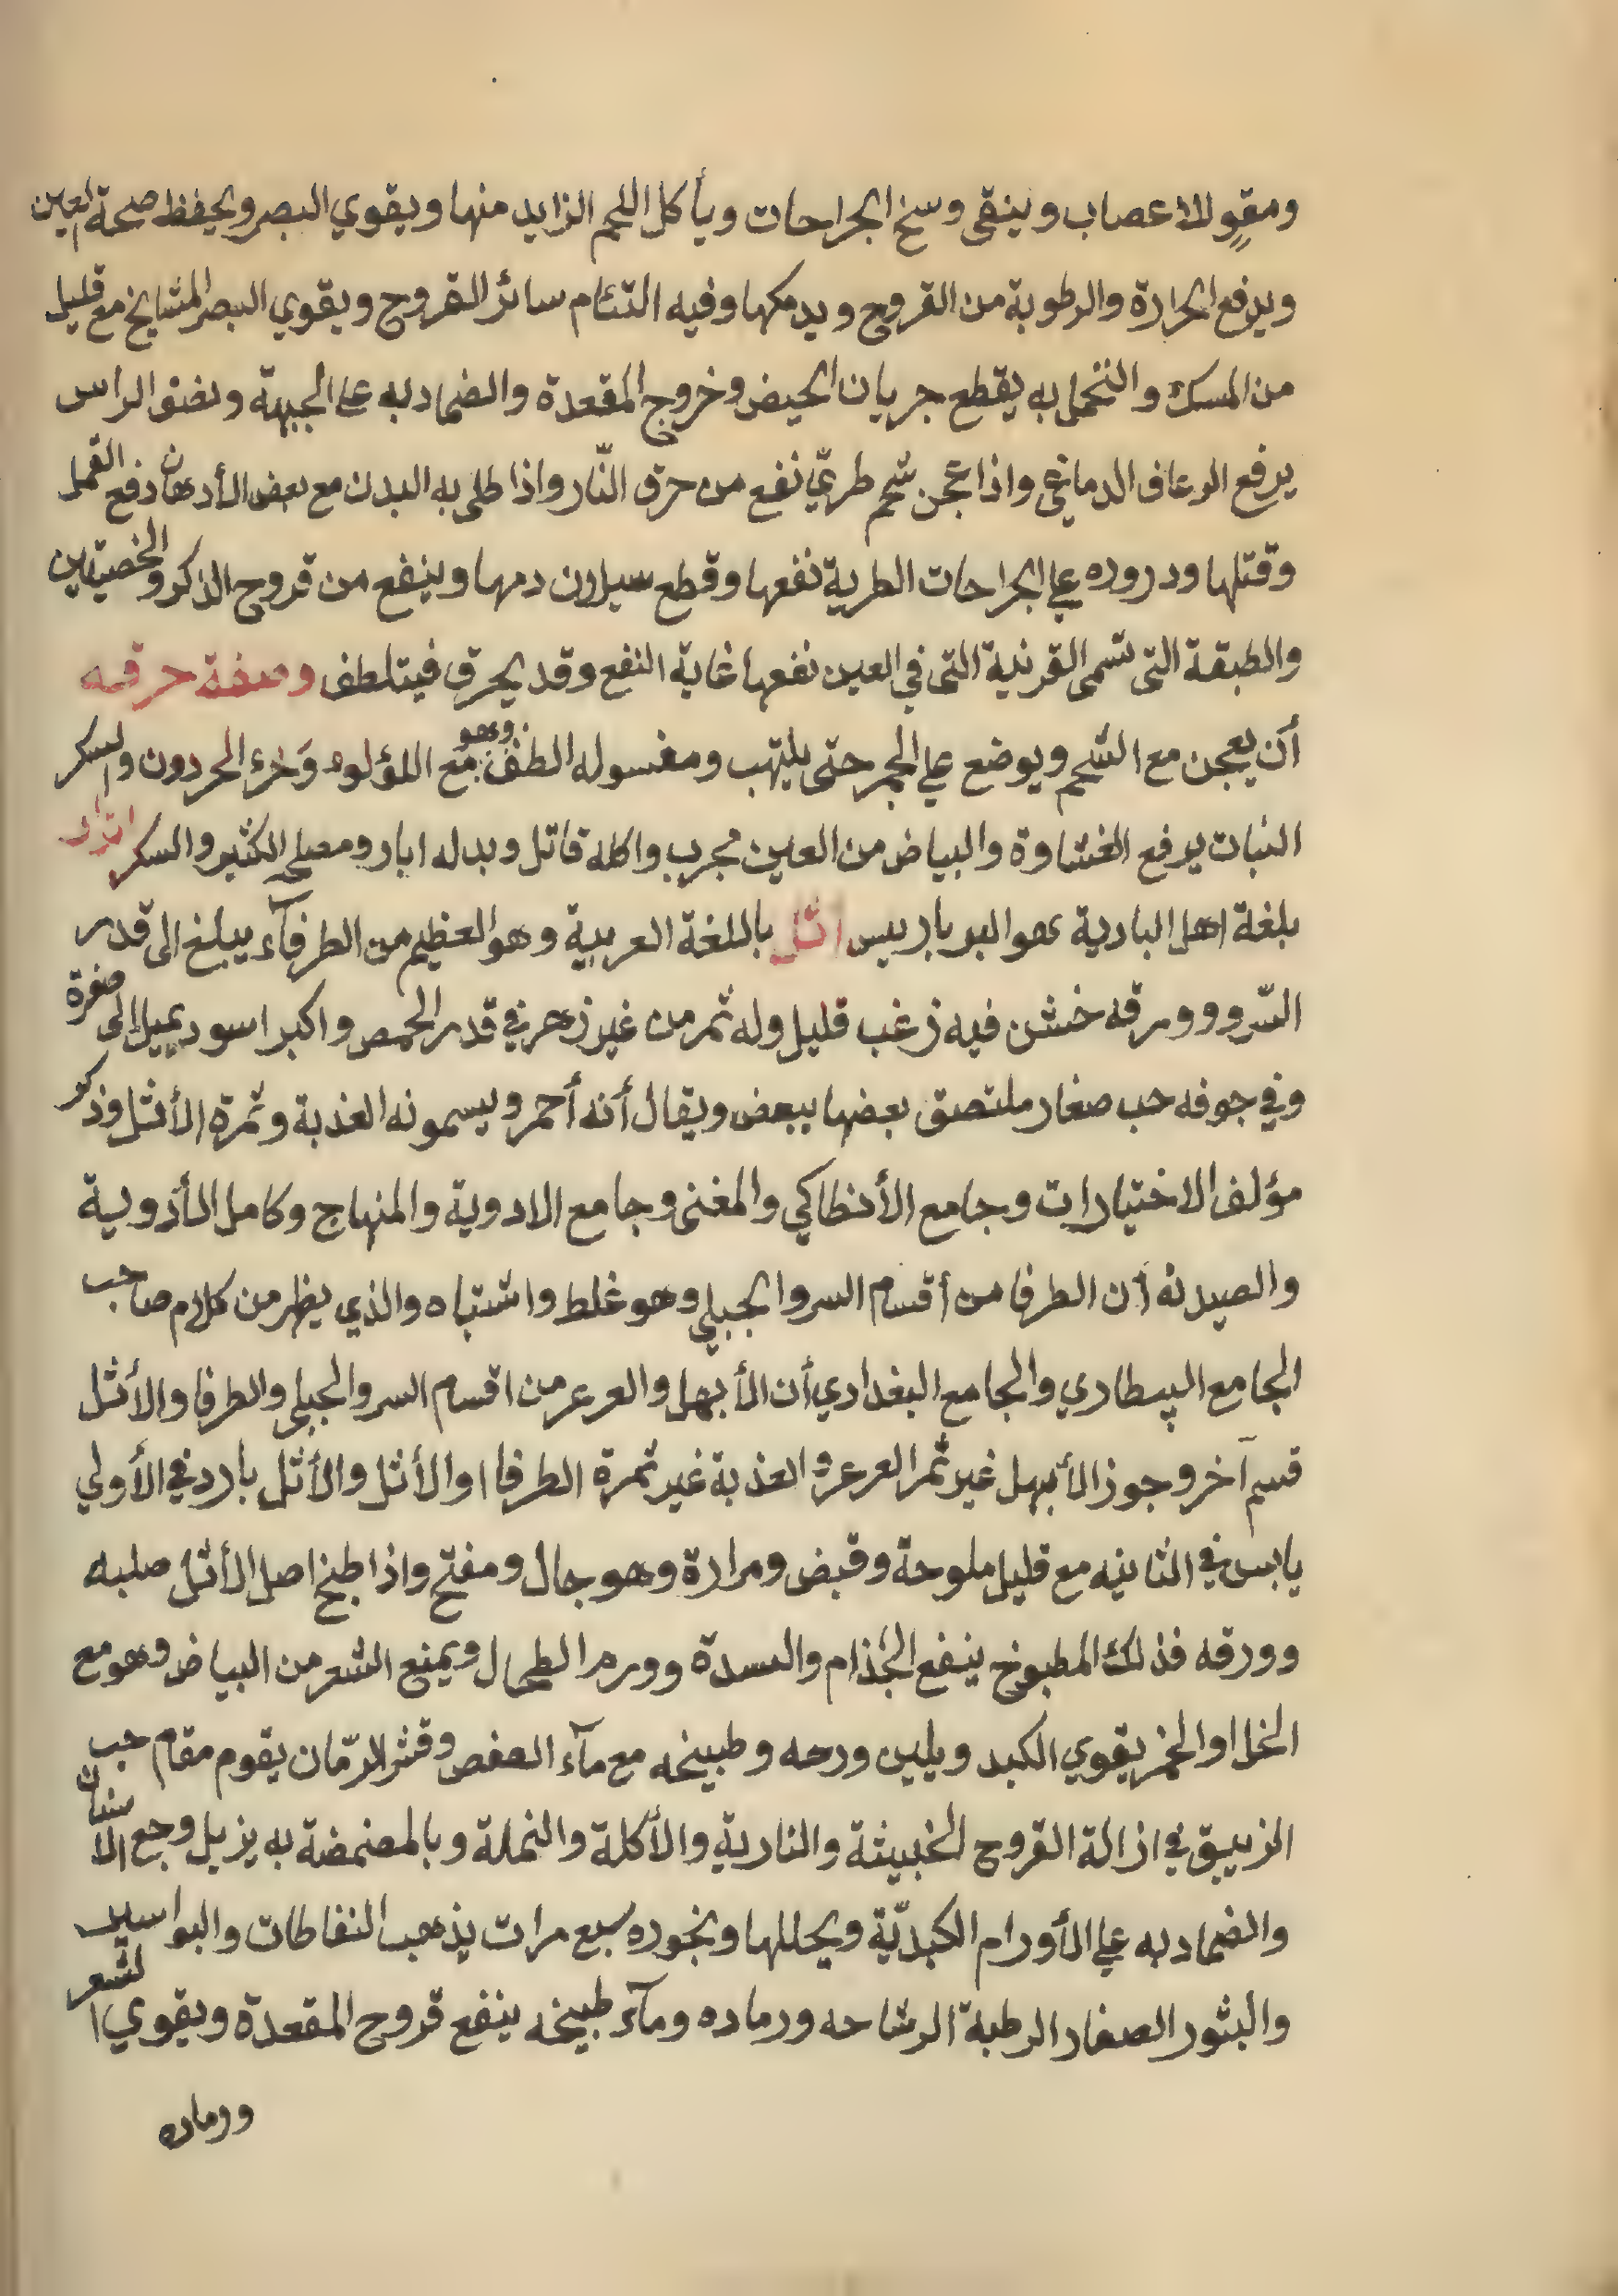 ومقوٍ للاعصاب وينقى وسخ الجراحات ويأكل اللحم الزايد منها ويقوي البصر ويحفظ صحة العين
ويرفع الحرارة والرطوبة من القروح ويدمكها وفيه التئام سائر القروح ويقوي البصر المشايخ مع قليل
من المسك والتحمل به يقطع جريان الحيض وخروج المقعدة والضماد به على الجبهة ونصف الراس
يرفع الرعاف الدماغي واذا عجن شحم طريّ نفع من حرق النّار واذا طلى به البدن مع بعض الأدهان دفع القمل
وقتلها ودروره على الجراحات الطرية نفعها وقطع سيلان دمها وينفع من قروح الذكر والخصيتين
والطبقة التى تسمى القرنية التى في العين نفعها غاية النفع وقد يحرق فيتلطف وصفة حرقه
أن يعجن مع الشحم ويوضع على الجمر حتى يلتهب ومغسوله الطف وهو مع اللؤلوء وَخرء الحردون والسكر
النبات يرفع الغشاوة والبياض من العين مجرب واكله قاتل وبدله ابار ومصلحه الكثير والسكر اترار
بلغة اهل البادية هو البرباريس اثل باللغة العربية وهو العظيم من الطرفآء يبلغ الى قدر
السّرو وورقه خشن فيه زغب قليل وله ثمر من غير زهر في قدر الحمص واكبر اسود يميل إلى صفرة
وفي جوفه حب صغار ملتصق بعضها ببعض ويقال أنه أحمر ويسمونه العذبة وثمرة الأثل وذكر
مؤلف الاختيارات وجامع الأنطاكي والمغنى وجامع الادوية والمنهاج وكامل الأدوية
والصيدنه أن الطرفا من أقسام السرو الجبلي وهو غلط واشتباه والذي يظهر من كلام صاحب
الجامع البيطاري والجامع البغدادي أن الأبهل والعرعر من اقسام السرو الجبلى والطرفا والأثل
قسم آخر وجوز الأبهل غير ثمر العرعر والعذبة غير ثمرة الطرفا او الأثل والأثل بارد في الأولي
يابس في الثانيه مع قليل ملوحة وقبض ومرارة وهو جال ومفتح واذا طبخ اصل الأثل صلبه
وورقه فذلك المطبوخ ينفع الجذام والسدة وورم الطحال ويمنع الشعر من البياض وهو مع
الخل او الخمر يقوي الكبد ويلين ورمه وطبيخه مع مآء العفص وقشر الرمّان يقوم مقام حب
الزيبق في ازالة القروح الخبيثة والنارية والأكلة والنملة وبالمضمضة به يزيل وجع الاسنان
والضماد به على الأورام الكبديّة ويحللها وبخوره سبع مرات يذهب النفاطات والبواسير
والبثور الصغار الرطبة الرشاحه ورماده ومآء طبيخه ينفع قروح المقعدة ويقوي الشعر
ورماده